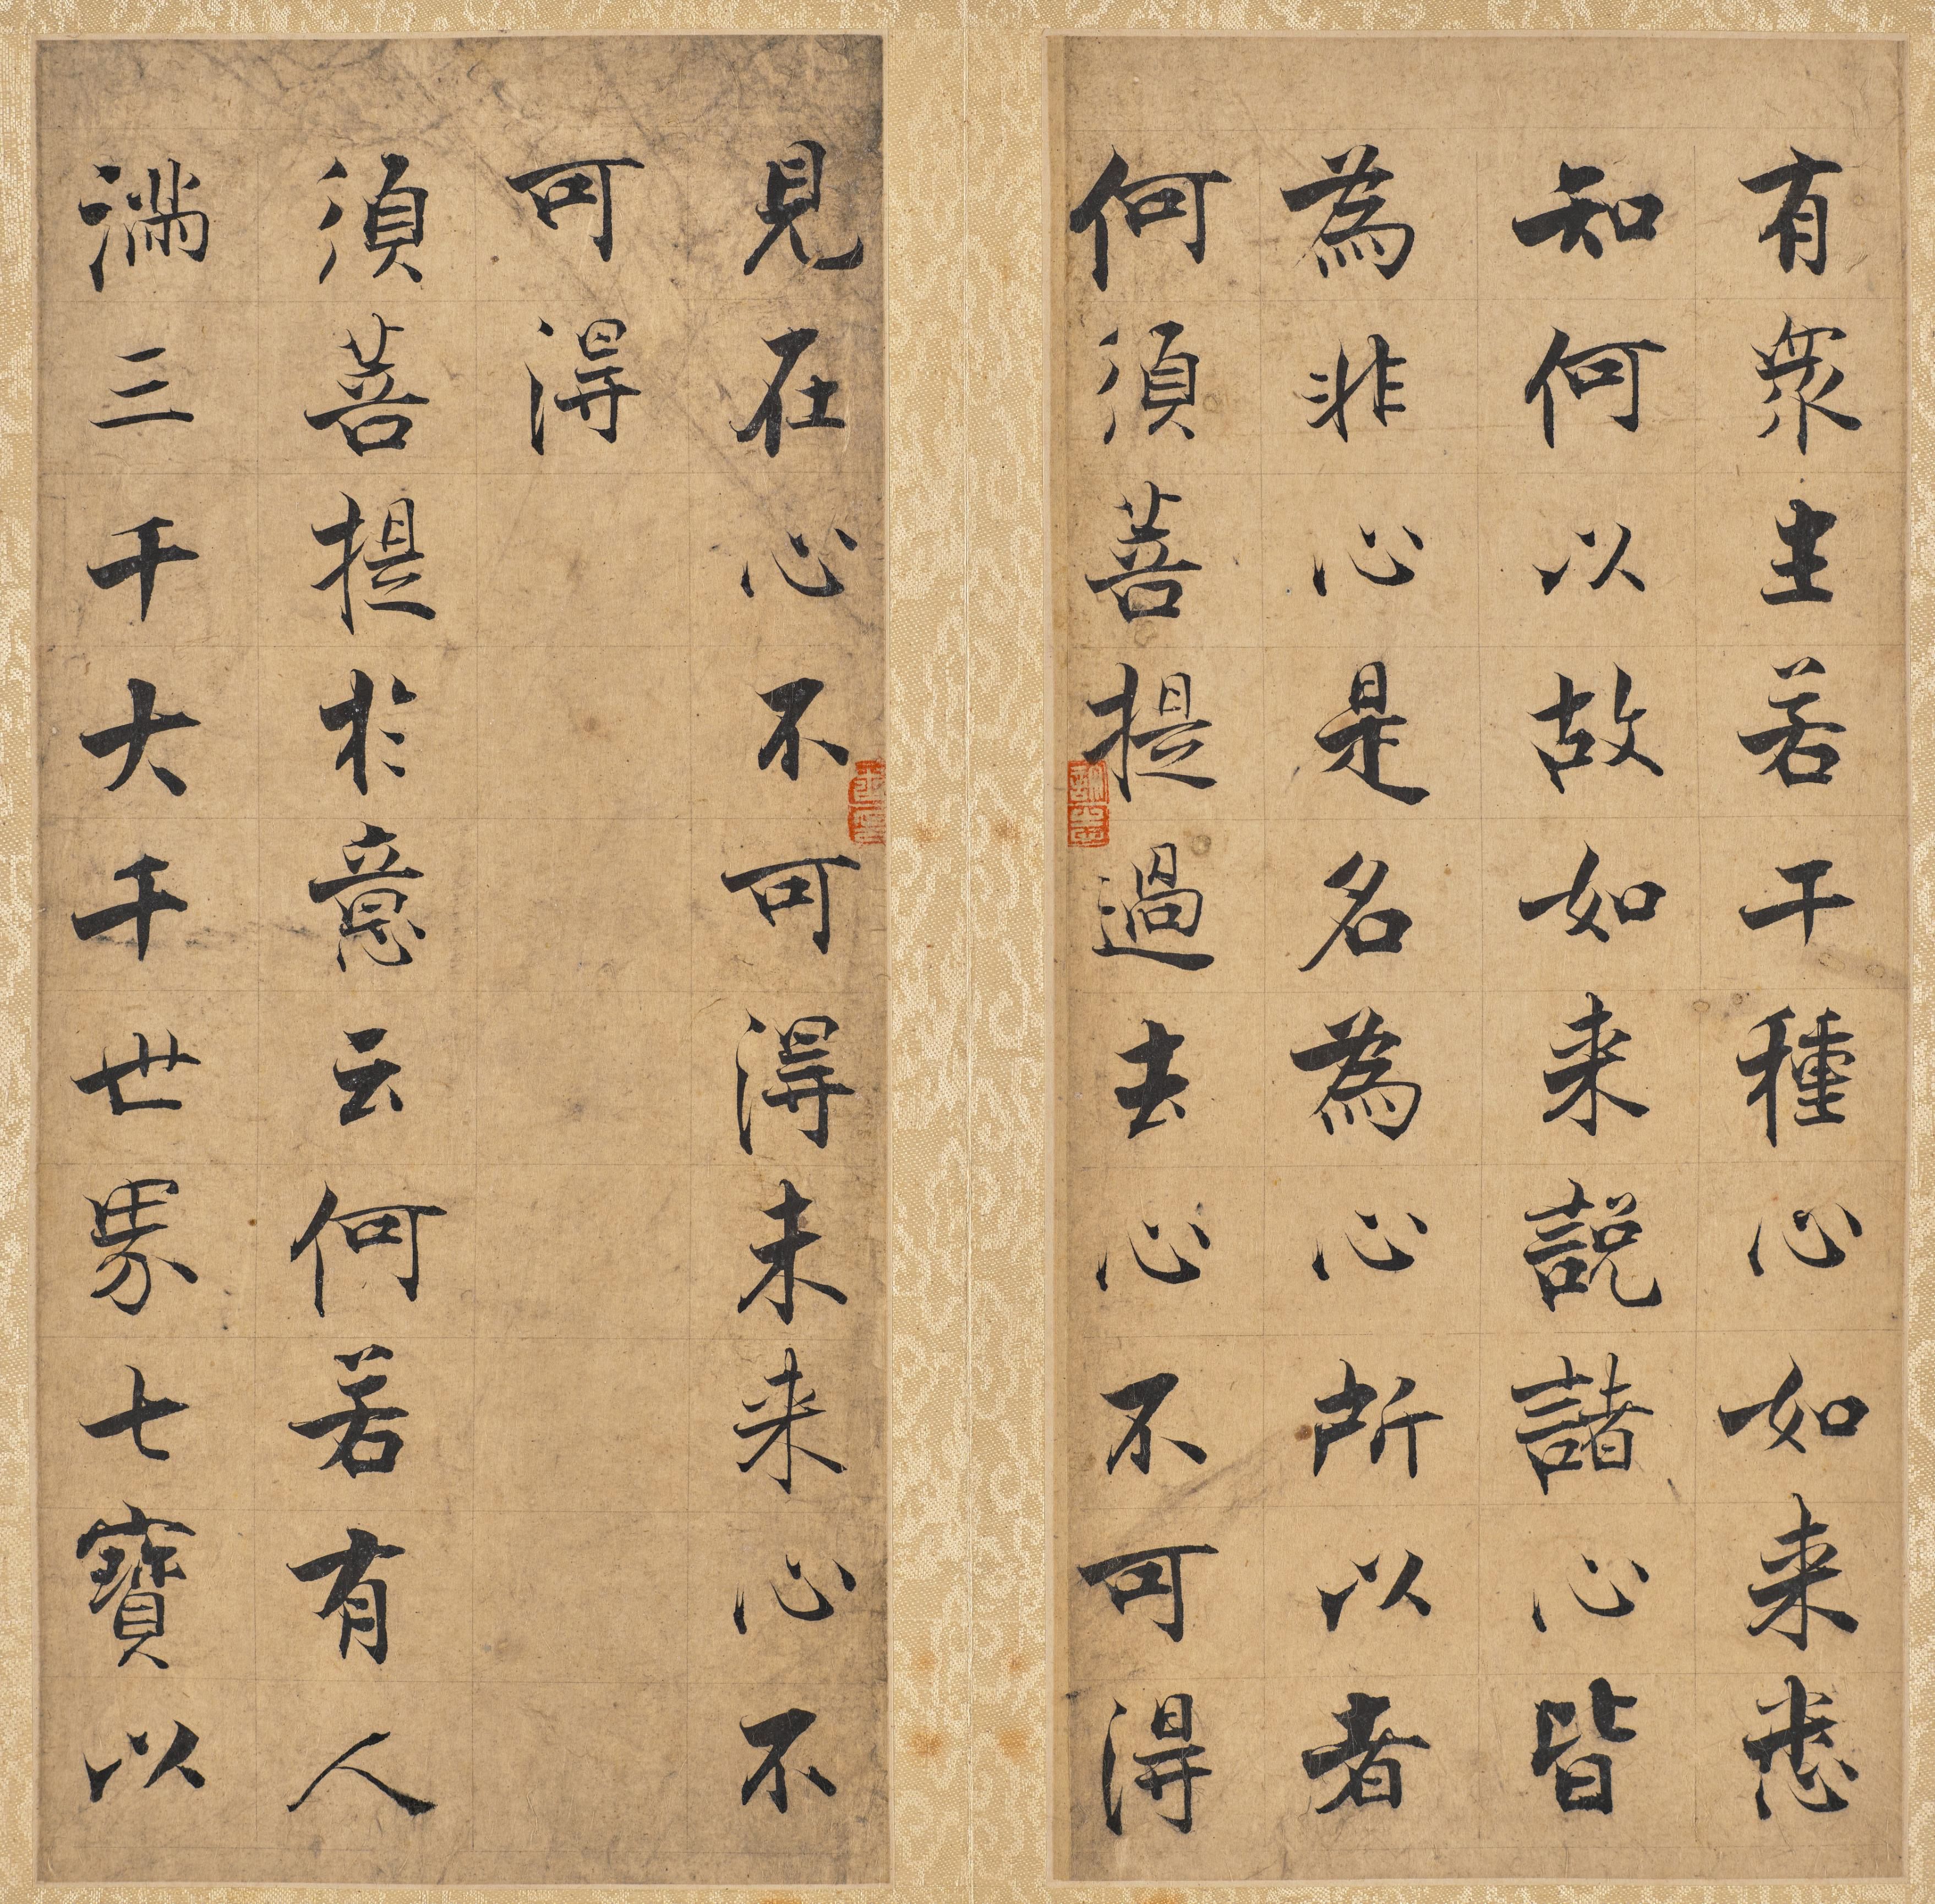 有衆生若干種心如来悉
知何以故如来説諸心皆
為非心是名為心所以者
何須菩提過去心不可得
見在心不可得未来心不
可得
須菩提於意云何若有人
滿三千大千世界七寶以